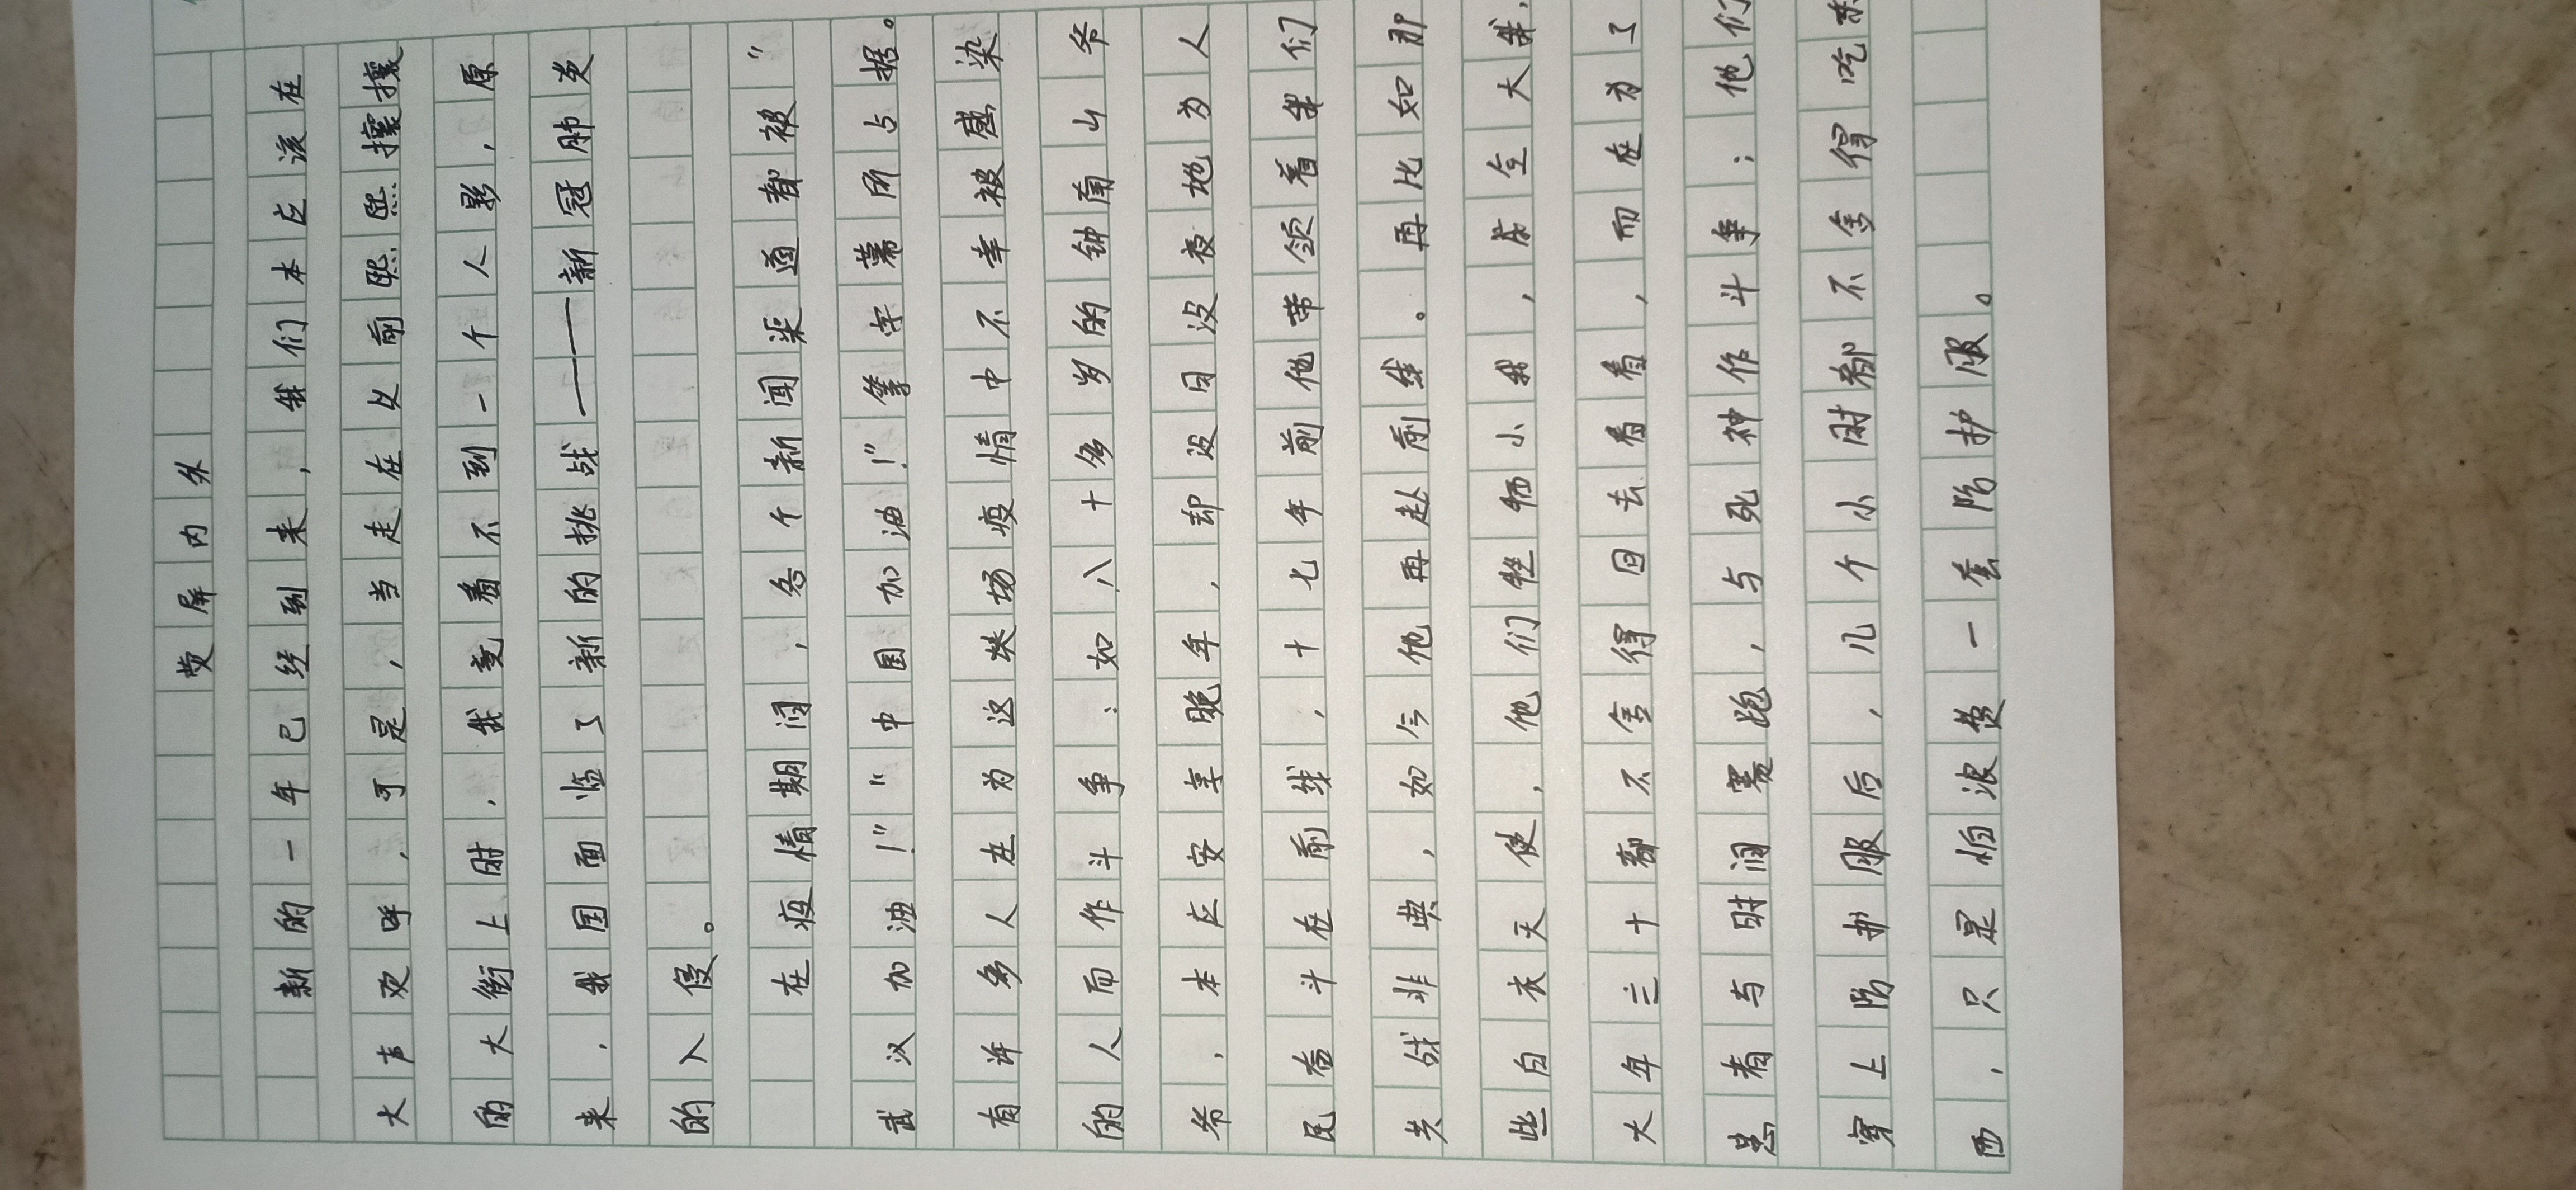 荧屏内外
新的一年已经到来，我们本应该在
大声欢呼，可是，当走在以前熙熙攘攘
的大街上时，我竟看不到一个人影，原
来，我国面临了新的挑战——新冠肺炎
的入侵。
在疫情期间，各个新闻渠道都被“
武汉加油！”“中国加油！”等字幕所占据。
有许多人在为这块场疫情中不幸被感染
的人而作斗争：如八十多岁的钟南山爷
爷，本应安享晚年，却没日没夜地为人
民奋斗在前线，十七年前他带领着我们
共战非典，如今他再赴前线。再比如那
些白衣天使，他们牺牲小我，成全大我，
大年三十都不舍得回去看看，而在为了
患者与时间赛跑，与死神作斗争；他们
穿上防护服后，几个小时都不舍得吃东
西，只是怕浪费一套防护服。